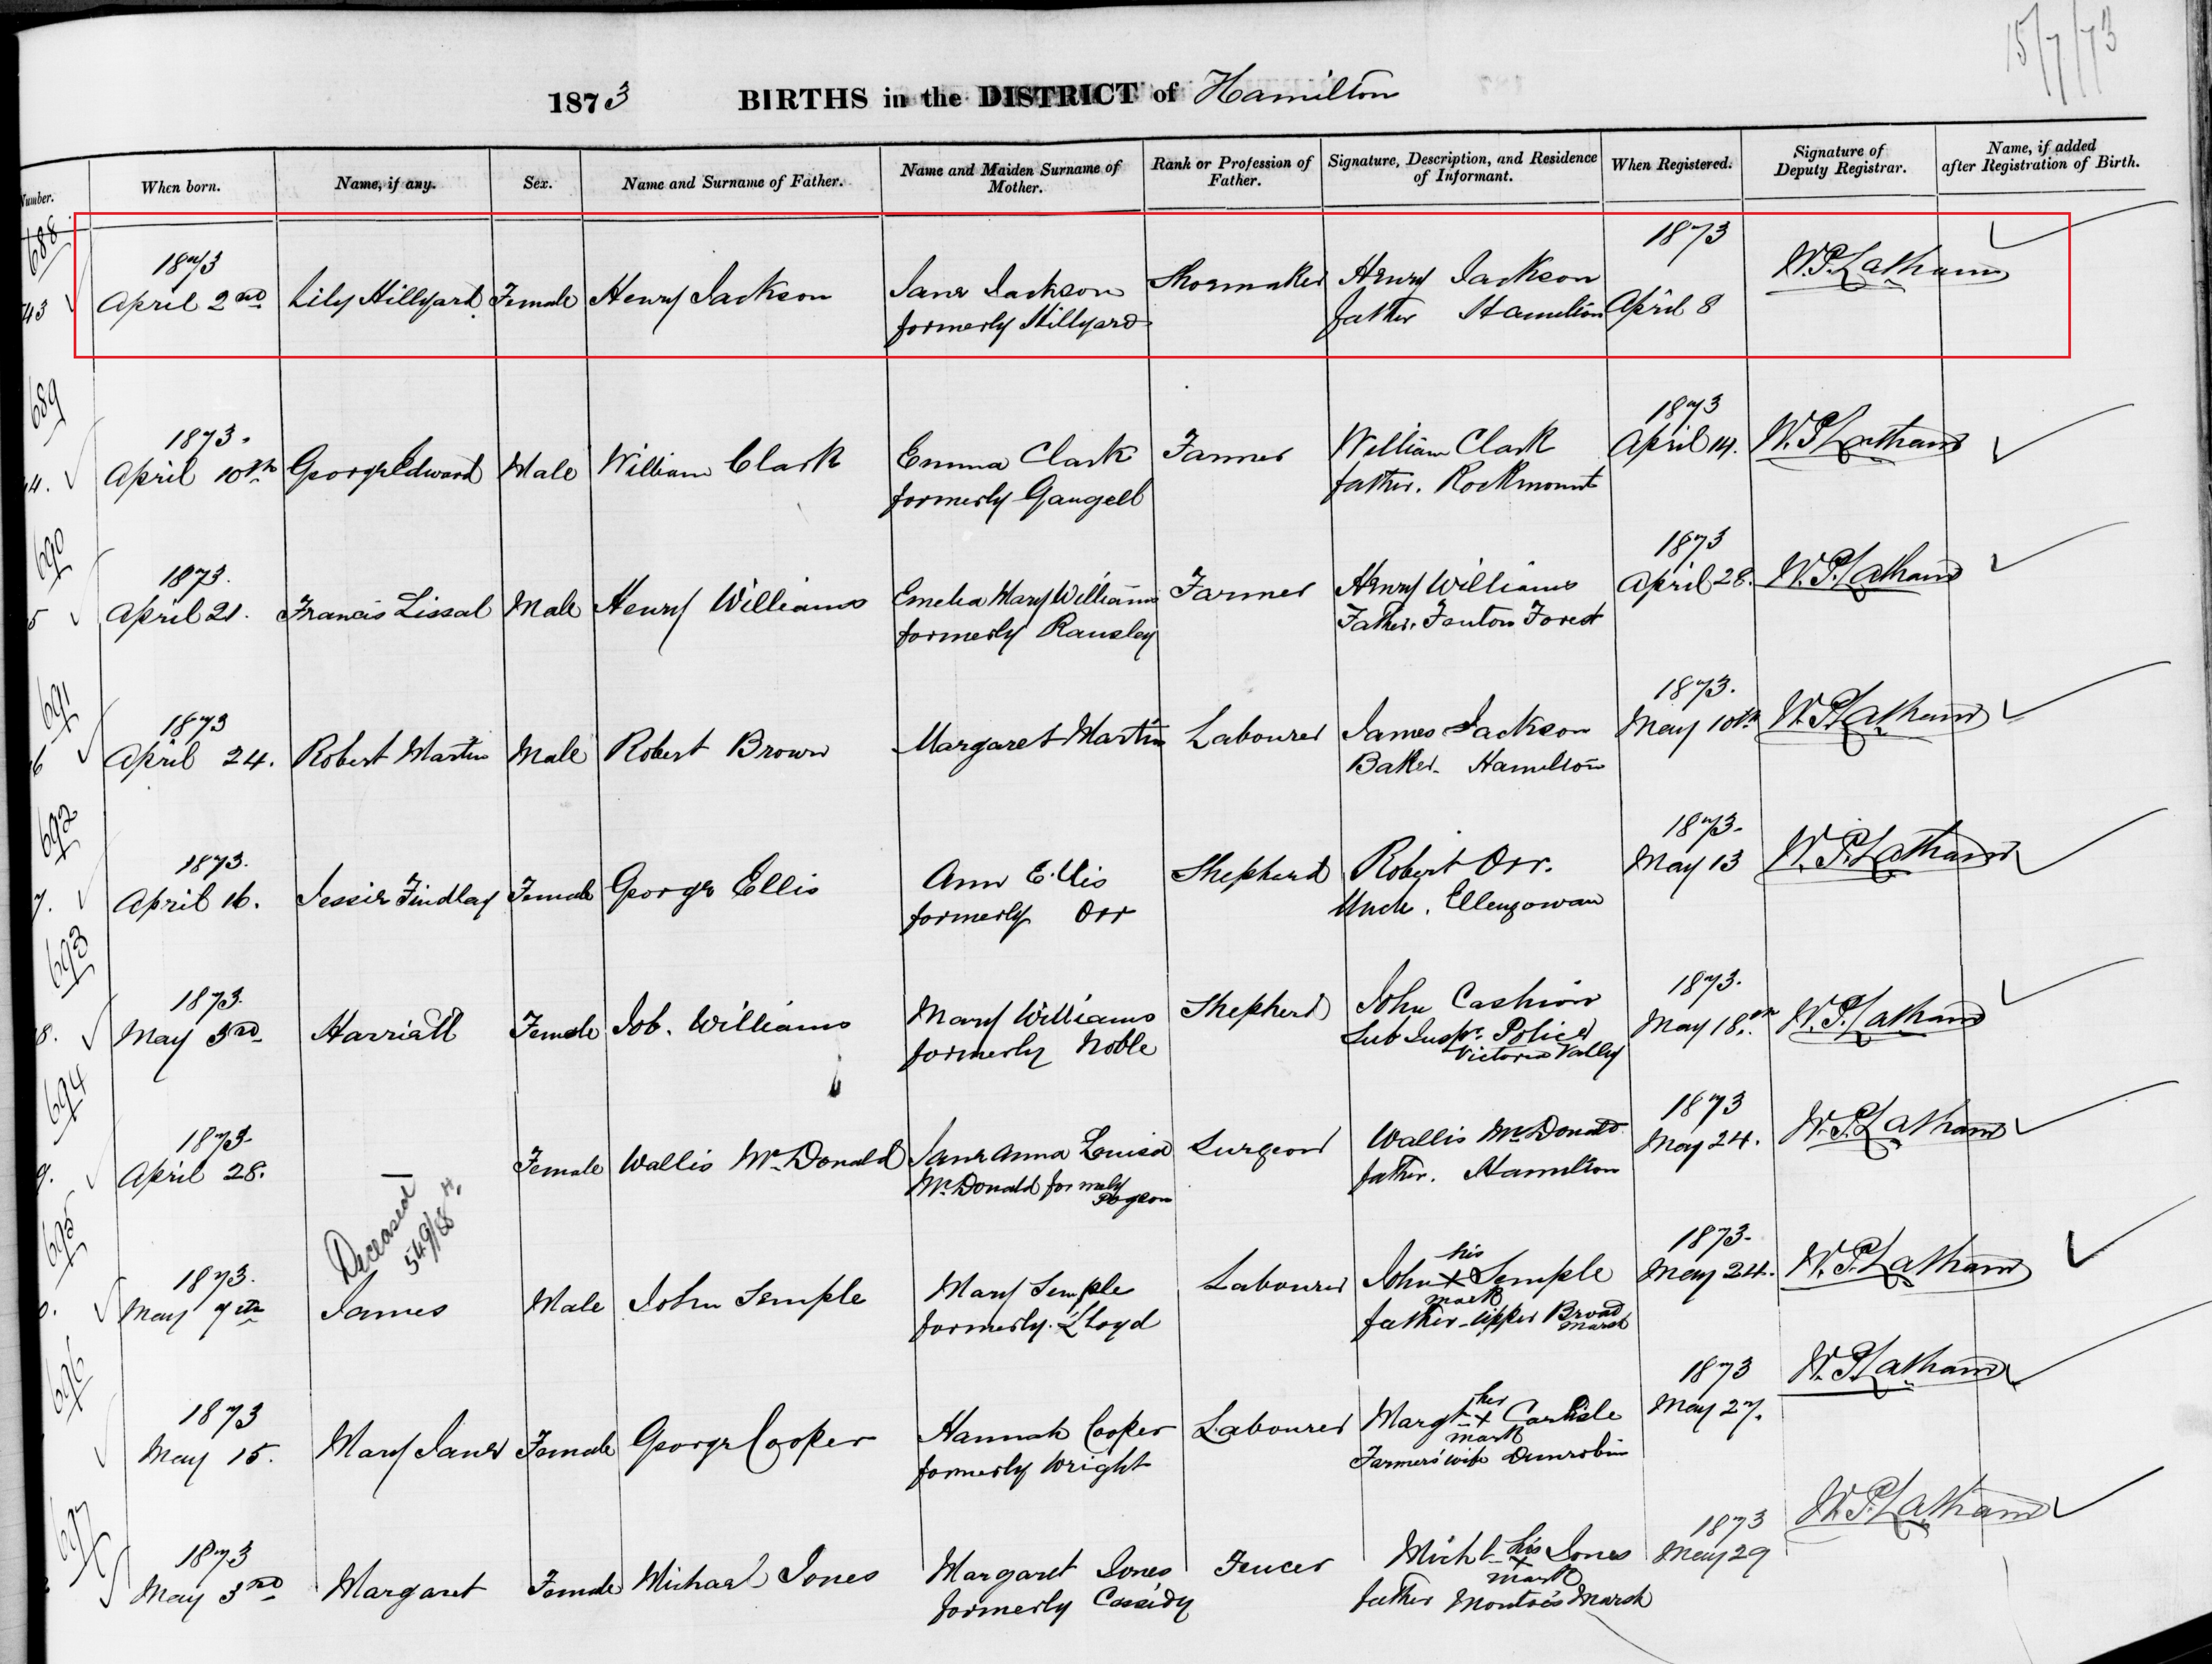 15/7/73
1873 BIRTHS in the DISTRICT of Hamilton
Number. When born. Name, if any. Sex. Name and Surname of Father. Name and Maiden Surname of Mother. Rank or Profession of Father. Signature, Description, and Residence of Informant. When Registered. Signature of Deputy Registrar. Name, if added after Registration of Birth.
688
1873 1873
43 April 2nd Lily Hillyard Female Henry Jackson Jane Jackson Shoemaker Henry Jackson April 8 W.P. Latham
formerly Hillyard father Hamilton
689
1873. 1873
4. April 10th George Edward Male William Clark Emma Clark Farmer William Clark April 14. W.P. Latham
formerly Gangell father. Rockmount
690
1873. 1873
5 April 21. Francis Lissal Male Henry Williams Emelia Mary Williams Farmer Henry Williams April 28. W.P. Latham
formerly Ransley Father. Fenton Forest
691
1873 1873.
6 April 24. Robert Martin Male Robert Brown Margaret Martin Labourer James Jackson May 10th W.P. Latham
Baker. Hamilton
692
1873. 1873.
7. April 16. Jessie Findlay Female George Ellis Ann Ellis Shepherd Robert Orr. May 13 W.P. Latham
formerly Orr Uncle. Ellengowan
693
1873. 1873.
8. May 3rd Harriatt Female Job. Williams Mary Williams Shepherd John Cashion May 18th W.P. Latham
formerly Noble Sub Inspr. Police Victoria Valley
694
1873. 1873
9. April 28. Female Wallis McDonald Jane Anna Louisa Surgeon Wallis McDonald May 24. W.P. Latham
McDonald formerly father. Hamilton
Deceased
695
1873. 1873.
0. May 7th James Male John Semple Mary Semple Labourer John his x mark Semple May 24. W.P. Latham
formerly Lloyd father Upper Broad Marsh
696
1873 1873
May 15. Mary Jane Female George Cooper Hannah Cooper Labourer Margt her x mark Carlisle May 27. W.P. Latham
formerly Wright Farmers' wife Dunrobin
697
1873 1873
May 3rd Margaret Female Michael Jones Margaret Jones Fencer Michl his x mark Jones May 29 W.P. Latham
formerly Cassidy father Montos Marsh